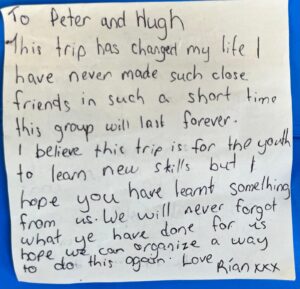 To Peter and Hugh
This trip has changed my life I
have never made such close
friends in such a short time
this group will last forever.
I believe this trip is for the youth
to learn new skills but I
hope you have learnt something
from us. We will never forgot
what ye have done for us
hope we can organize a way
to do this again. Love
Rían xxx